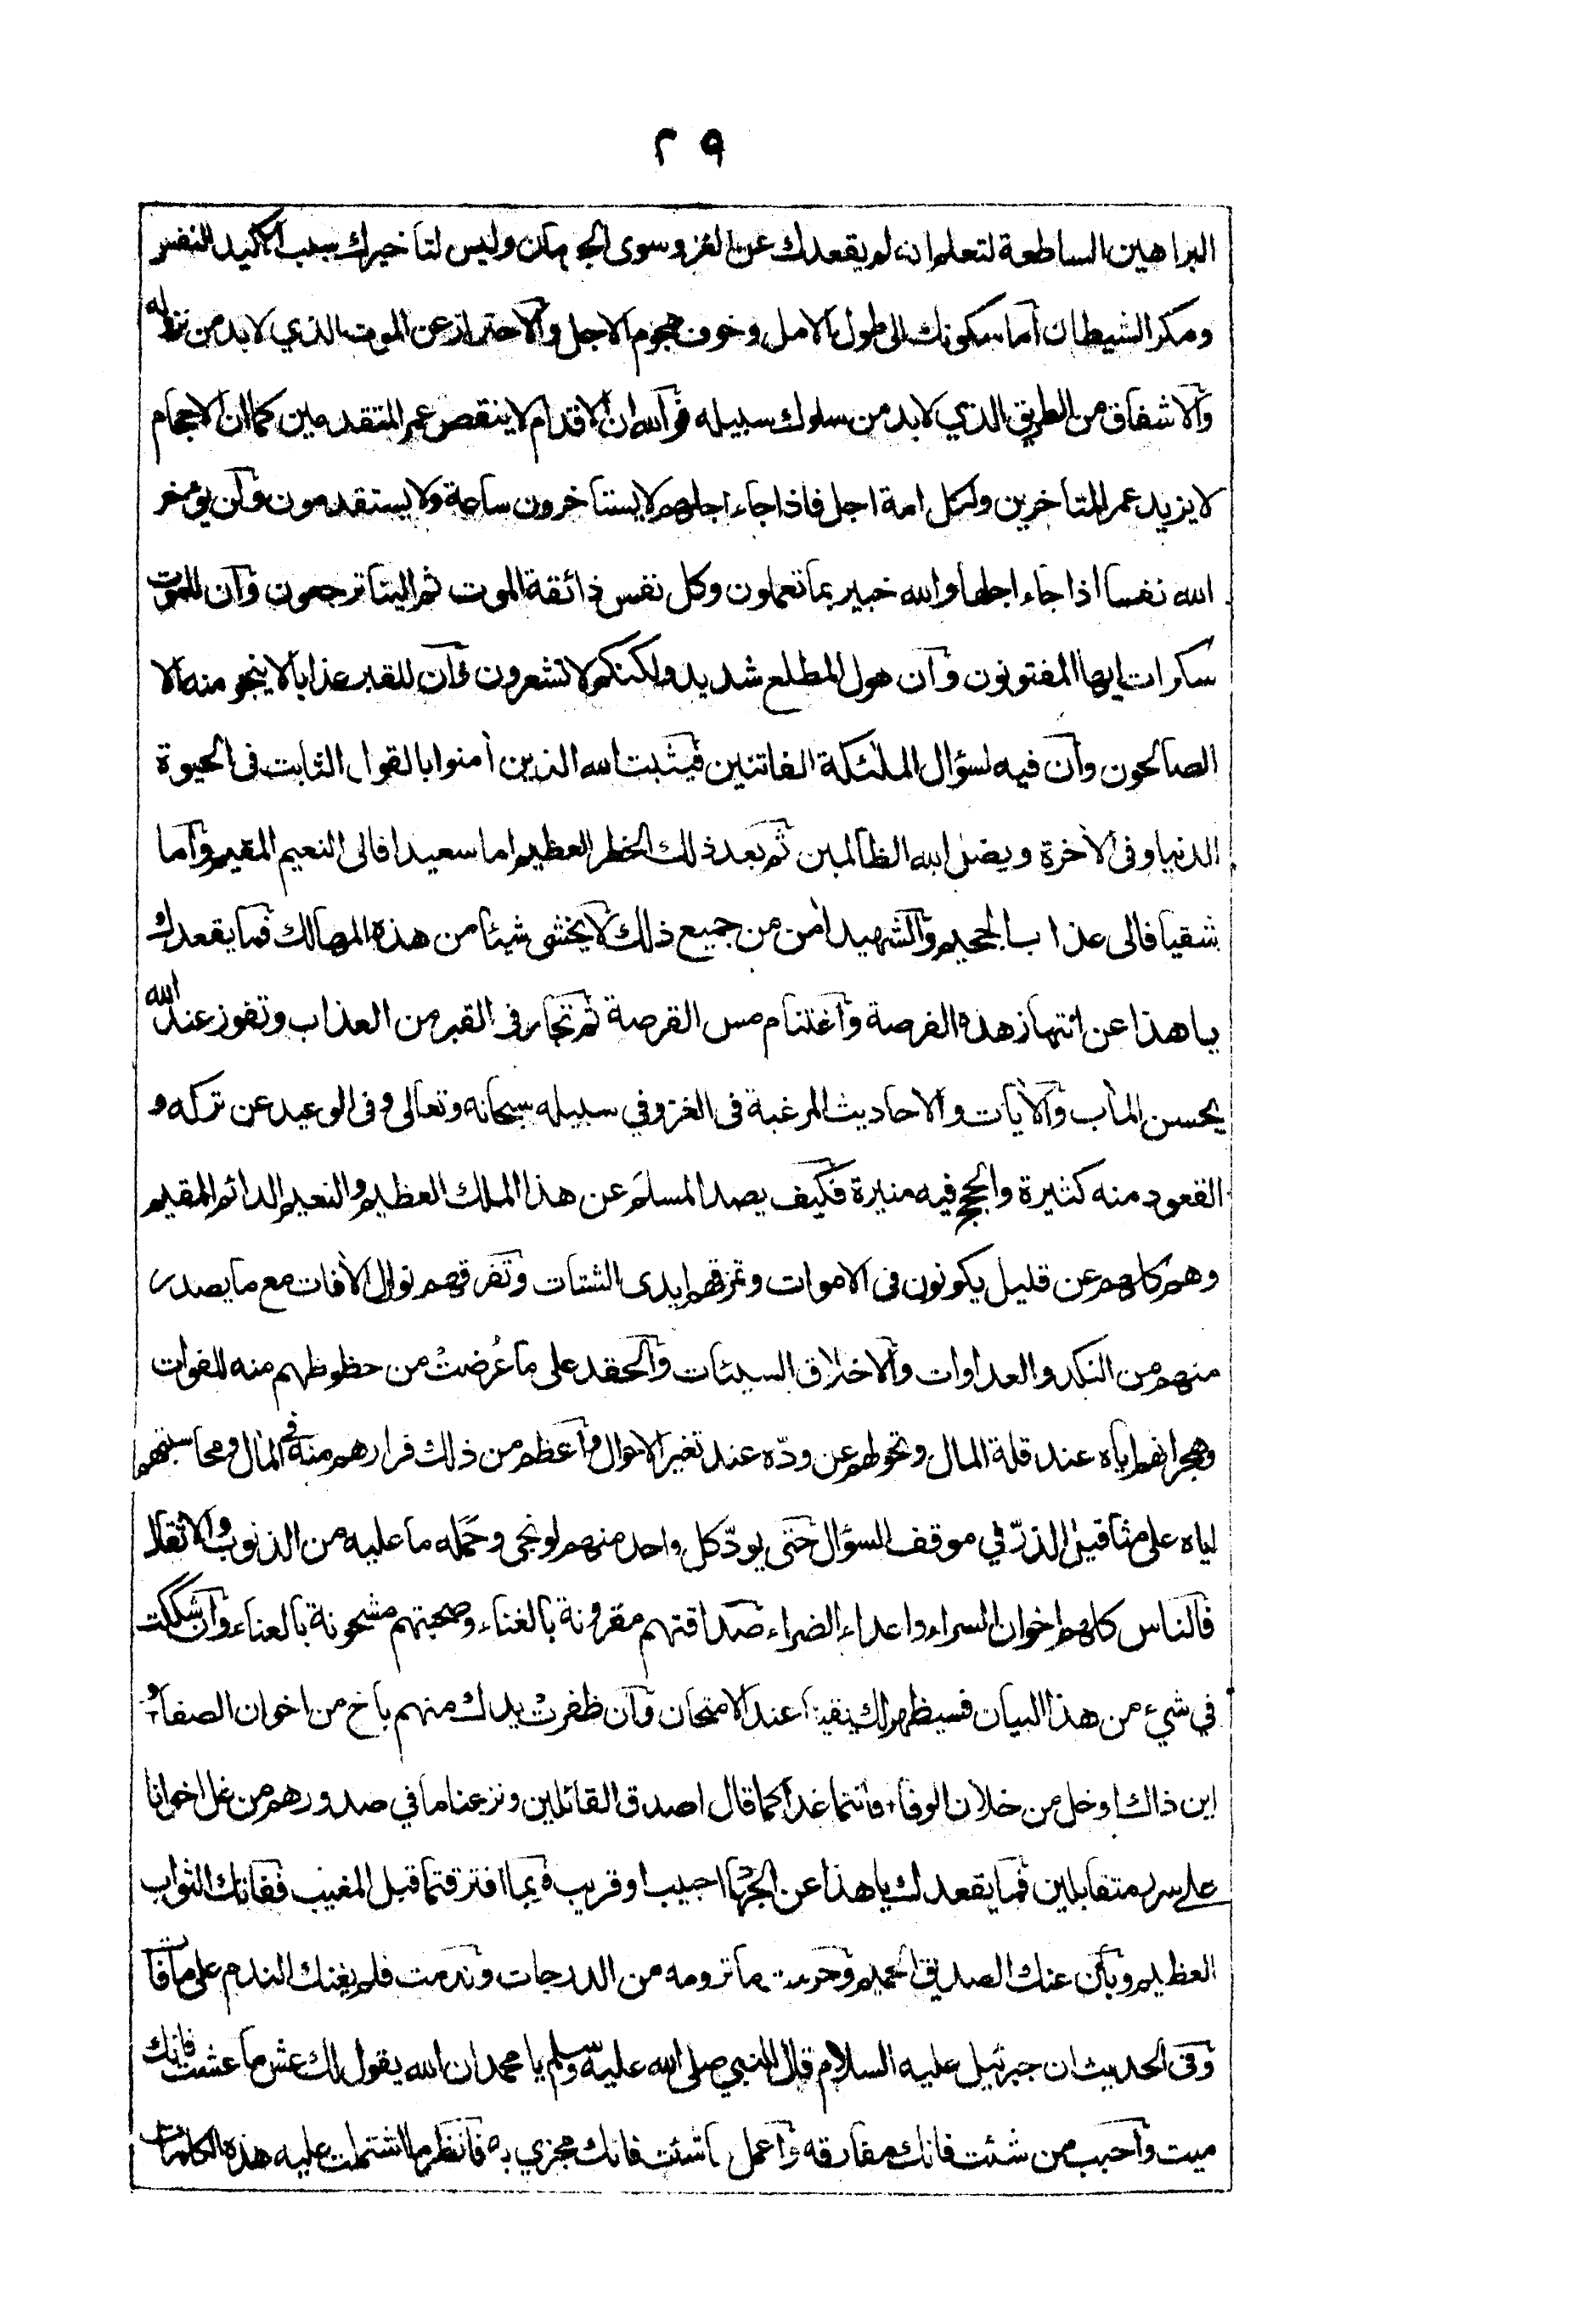 ٢٩
البراهين الساطعة لتعلم انه لم يقعدك عن الغزو سوى الحرمان وليس لتأخيرك سبب الا كيد النفس
ومكر الشيطان أما سكونك الى طول الامل وخوف هجوم الاجل والاحتراز عن الموت الذي لابد من نزوله
والاشفاق من الطريق الذي لابد من سلوك سبيله فوالله ان الاقدام لا ينقص عمر المتقدمين كما ان الاحجام
لا يزيد عمر المتأخرين ولكل امة اجل فاذا جاء اجلهم لا يستأخرون ساعة ولا يستقدمون ولن يؤخر
الله نفسا اذا جاء اجلها والله خبير بما تعملون وكل نفس ذائقة الموت ثم الينا ترجعون وان للموت
سكرات ايها المفتونون وان هول المطلع شديد ولكنكم لا تشعرون وان للقبر عذابا لا ينجو منه الا
الصالحون وان فيه لسؤال الملئكة الفاتنين فيثبت الله الذين أمنوا بالقول الثابت فى الحيوة
الدنيا وفى الأخرة ويضل الله الظالمين ثم بعد ذلك الخطر العظيم اما سعيدا فالى النعيم المقيم واما
شقيا فالى عذاب الجحيم والشهيد أمن من جميع ذلك لا يخشى شيئا من هذه المهالك فما يقعدك
يا هذا عن انتهاز هذه الفرصة واغتنام مس القرصة ثم تجار فى القبر من العذاب وتفوز عند الله
بحسن المأب والأيات والاحاديث المرغبة فى الغزو في سبيله سبحانه وتعالى وفى الوعيد عن تركه و
القعود منه كثيرة والحجج فيه منيرة فكيف يصد المسلم عن هذا الملك العظيم والنعيم الدائم المقيم
وهم كلهم عن قليل يكونون فى الاموات وتمزقهم ايدى الشتات وتفرقهم نوازل الأفات مع ما يصدر
منهم من النكد والعداوات والاخلاق السيئات والحقد على ما عُرضتْ من حظوظهم منه للفوات
وهجرانهم اياه عند قلة المال وتحولهم عن ودّه عند تغير الاحوال واعظم من ذلك فرارهم منه فى المأل ومحاسبتهم
اياه على مثاقيل الذرّ في موقف السؤال حتى يودّ كل واحد منهم لو نجى وحَمَله ما عليه من الذنوب والاثقال
فالناس كلهم اخوان السراء واعداء الضراء صداقتهم مقرونة بالغناء وصحبتهم مشحونة بالعناء وان شككت
في شيء من هذا البيان فسيظهر لك يقينا عند الامتحان وان ظفرتْ يداك منهم باخ من اخوان الصفاء و
اين ذاك او خل من خلان الوفاء فانتما غدا كما قال اصدق القائلين ونزعنا ما في صدورهم من غل اخوانا
على سرر متقابلين فما يقعدك يا هذا عن الجهاد احبيب او قريب فربما افترقتما قبل المغيب ففاتك الثواب
العظيم وبان عنك الصديق الحميم وحرمت ما ترومه من الدرجات وندمت فلم يغنك الندم على ما فات
وفى الحديث ان جبرئيل عليه السلام قال للنبي صلى الله عليه وسلم يا محمد ان الله يقول لك عش ما عشت فانك
ميت واحبب من شئت فانك مفارقه واعمل ما شئت فانك مجزي به فانظر ما اشتملت عليه هذه الكلمات